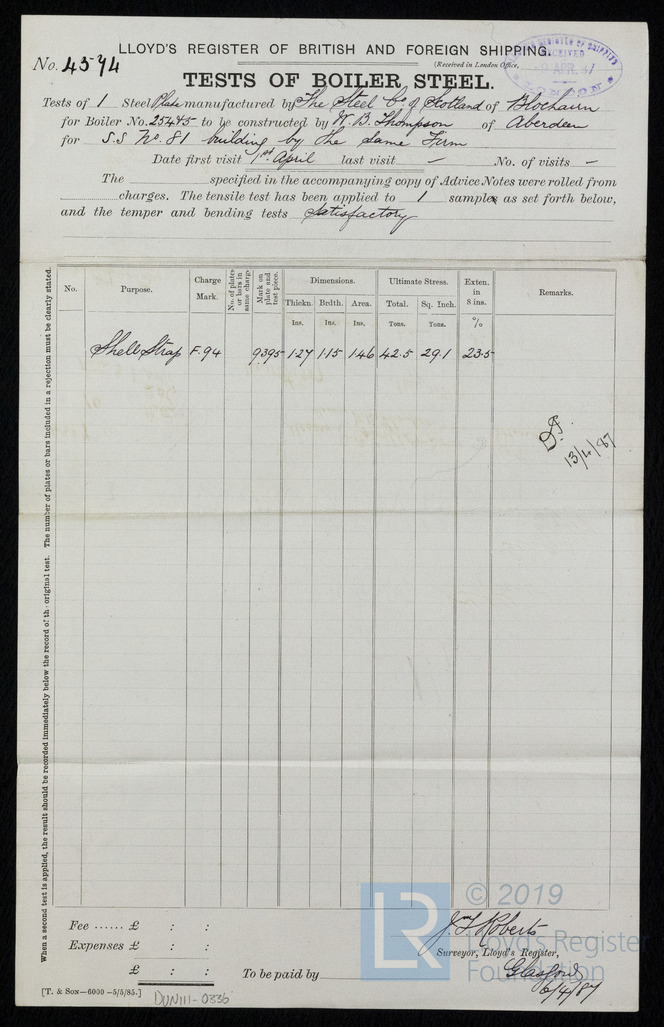 LLOYD'S REGISTER OF BRITISH AND FOREIGN SHIPPING.
No. 4574
(Received in London Office,
RECEIVED
APR. 87
LONDON
TESTS OF BOILER STEEL.
Tests of 1 Steel Plate manufactured by The Steel Co. of Scotland of Blochairn
for Boiler No. 25445 to be constructed by W. B. Thompson of Aberdeen
for S.S No. 81 building by the same Firm
Date first visit 1st April last visit — No. of visits —
The specified in the accompanying copy of Advice Notes were rolled from
charges. The tensile test has been applied to 1 samples as set forth below,
and the temper and bending tests Satisfactory
When a second test is applied, the result should be recorded immediately below the record of the original test. The number of plates or bars included in a rejection must be clearly stated.
No. Purpose. Charge Mark. No. of plates or bars in same charge Mark on plate and test piece. Dimensions. Ultimate Stress. Exten. in 8 ins. Remarks.
Thickn. Brdth. Area. Total. Sq. Inch.
Ins. Ins. Ins. Tons. Tons. %
Shell Strap F.94 9395 1·27 1·15 1·46 42.5 29.1 23·5
13/4/87
Fee ...... £ : :
Expenses £ : :
£ : :
To be paid by
J. T. Roberts
Surveyor, Lloyd's Register,
Glasgow
6/4/87
[T. & Son—6000—5/5/85.]
DUN111-0336
LR
© 2019
Lloyd's Register
Foundation